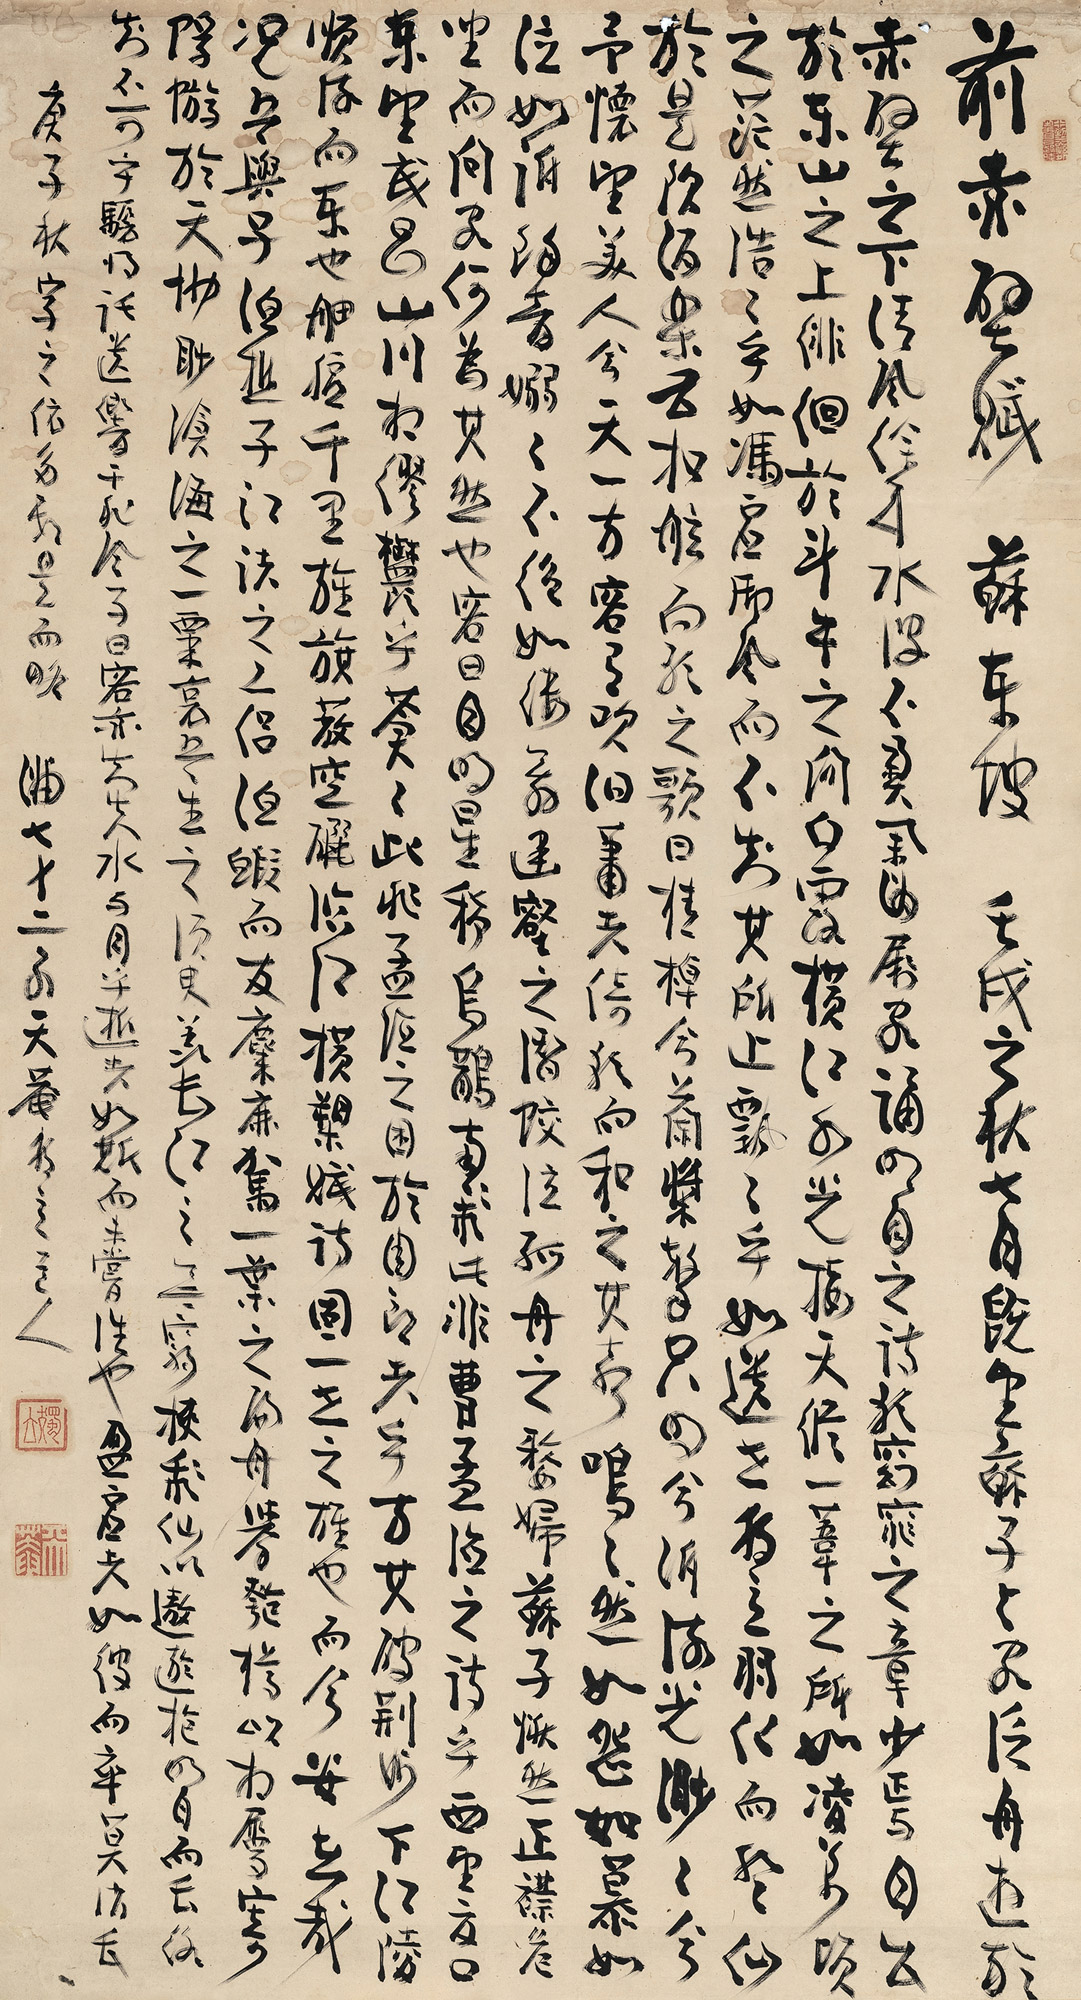 前赤壁賦 蘇東坡 壬戌之秋七月既望蘇子与客泛舟遊於
赤壁之下清風徐来水波不興舉酒屬客誦明月之詩歌窈窕之章少焉月出
於東山之上徘徊於斗牛之间白露横江水光接天縱一葦之所如凌萬頃
之茫然浩々乎如馮虚御風而不知其所止飄々乎如遺世獨立羽化而登仙
於是飲酒樂甚扣舷而歌之歌曰桂棹兮蘭槳擊空明兮泝流光渺々兮
予懷望美人兮天一方客有吹洞簫者倚歌而和之其聲嗚々然如怨如慕如
泣如訴餘音嫋々不絶如縷舞幽壑之潛蛟泣孤舟之嫠婦蘇子愀然正襟危
坐而问客何為其然也客曰月明星稀烏鵲南飛此非曹孟德之詩乎西望夏口
東望武昌山川相繆鬱乎蒼々此非孟德之困於周郎者乎方其破荆州下江陵
順流而東也舳艫千里旌旗蔽空釃酒臨江横槊賦詩固一世之雄也而今安在哉
况吾與子漁樵于江渚之上侣漁蝦而友麋鹿駕一葉之扁舟舉匏樽以相屬寄
蜉蝣於天地眇滄海之一粟哀吾生之須臾羨長江之無窮挾飛仙以遨遊抱明月而長終
知不可乎驟得託遺響于悲風子曰客亦知夫水与月乎逝者如斯而未嘗往也盈虚者如彼而卒莫消長
庚子秋 而略 七十二翁天菴 人